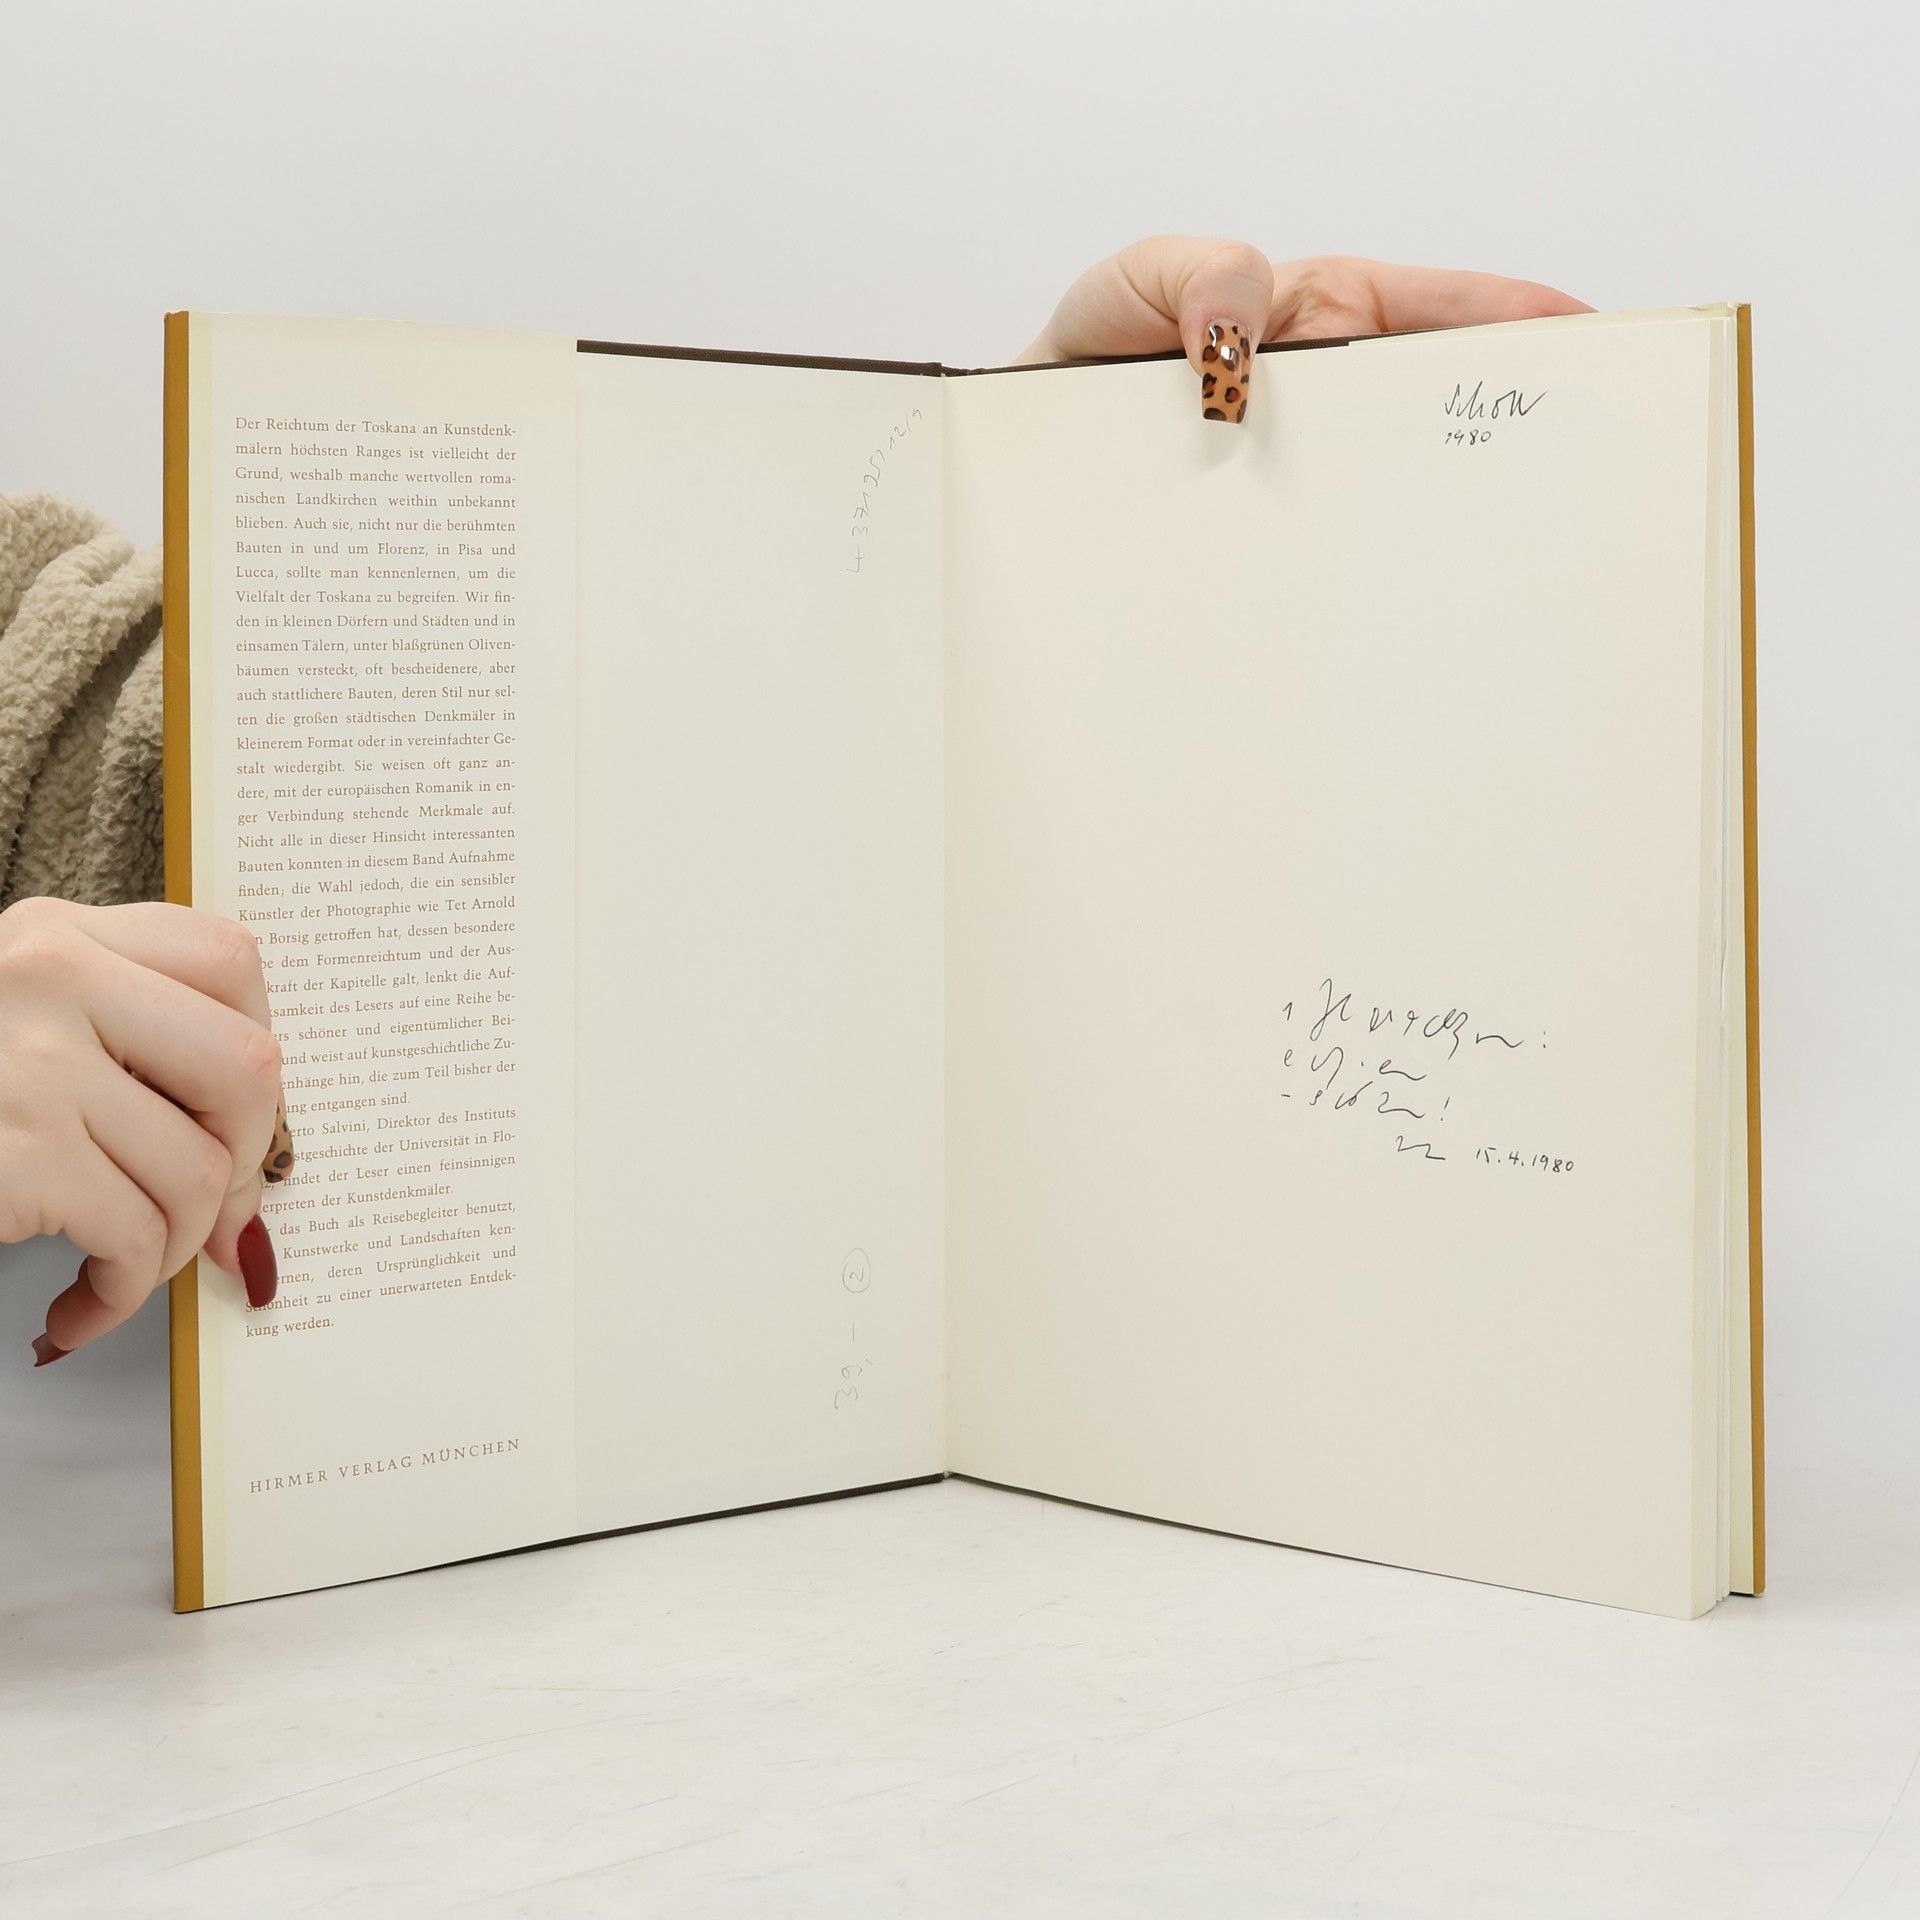 Der Reichtum der Toskana an Kunstdenk-
mälern höchsten Ranges ist vielleicht der
Grund, weshalb manche wertvollen roma-
nischen Landkirchen weithin unbekannt
blieben. Auch sie, nicht nur die berühmten
Bauten in und um Florenz, in Pisa und
Lucca, sollte man kennenlernen, um die
Vielfalt der Toskana zu begreifen. Wir fin-
den in kleinen Dörfern und Städten und in
einsamen Tälern, unter blaßgrünen Oliven-
bäumen versteckt, oft bescheidenere, aber
auch stattlichere Bauten, deren Stil nur sel-
ten die großen städtischen Denkmäler in
kleinerem Format oder in vereinfachter Ge-
stalt wiedergibt. Sie weisen oft ganz an-
dere, mit der europäischen Romanik in en-
ger Verbindung stehende Merkmale auf.
Nicht alle in dieser Hinsicht interessanten
Bauten konnten in diesem Band Aufnahme
finden; die Wahl jedoch, die ein sensibler
Künstler der Photographie wie Tet Arnold
n Borsig getroffen hat, dessen besondere
be dem Formenreichtum und der Aus-
kraft der Kapitelle galt, lenkt die Auf-
samkeit des Lesers auf eine Reihe be-
ers schöner und eigentümlicher Bei-
und weist auf kunstgeschichtliche Zu-
enhänge hin, die zum Teil bisher der
ung entgangen sind.
erto Salvini, Direktor des Instituts
stgeschichte der Universität in Flo-
findet der Leser einen feinsinnigen
erpreten der Kunstdenkmäler.
das Buch als Reisebegleiter benutzt,
Kunstwerke und Landschaften ken-
ernen, deren Ursprünglichkeit und
Schönheit zu einer unerwarteten Entdek-
kung werden.
HIRMER VERLAG MÜNCHEN
39,- 2
1980
15.4.1980